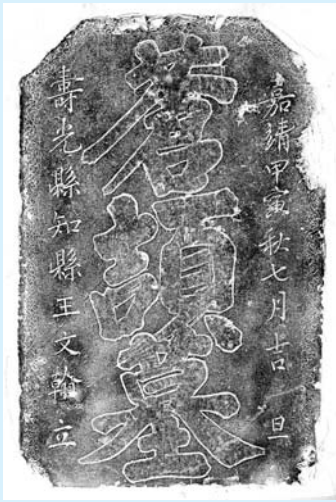 嘉靖甲寅秋七月吉旦
蒼頡墓
壽光縣知縣王文翰立